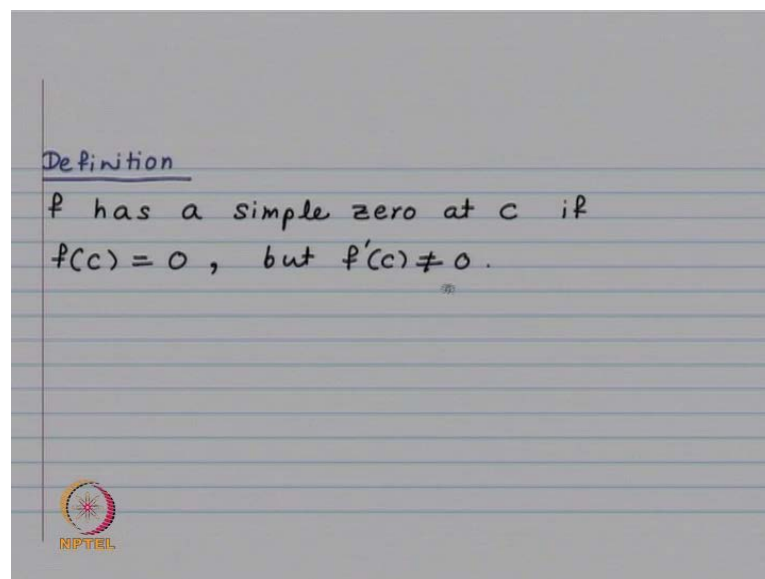 Definition
f has a simple zero at c if
f(c) = 0 , but f'(c) ≠ 0 .
NPTEL